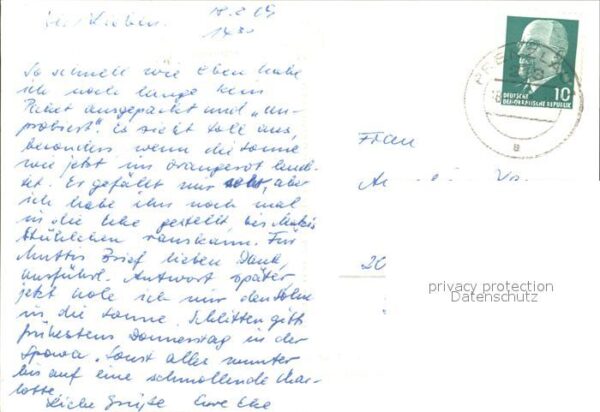 18.2.69
1430
So schnell wie eben habe
ich noch lange kein
Paket ausgepackt und „an-
probiert“. Es sieht toll aus,
besonders wenn die Sonne
wie jetzt ins Orangerot leuch-
tet. Es gefällt mir sehr, aber
ich habe ihn noch mal
in die Ecke gestellt, bis
Stühlchen rauskann. Für
Muttis Brief lieben Dank,
ausführl. Antwort später
jetzt hole ich mir den Sohn
in die Sonne. Schlitten gibts
frühestens Donnerstag in der
Spowa. Sonst alles munter
bis auf eine schmollende Char-
lotte.
Liebe Grüße Eure
Frau
20
DEUTSCHE
DEMOKRATISCHE REPUBLIK
10
PRENZLAU
a
privacy protection
Datenschutz